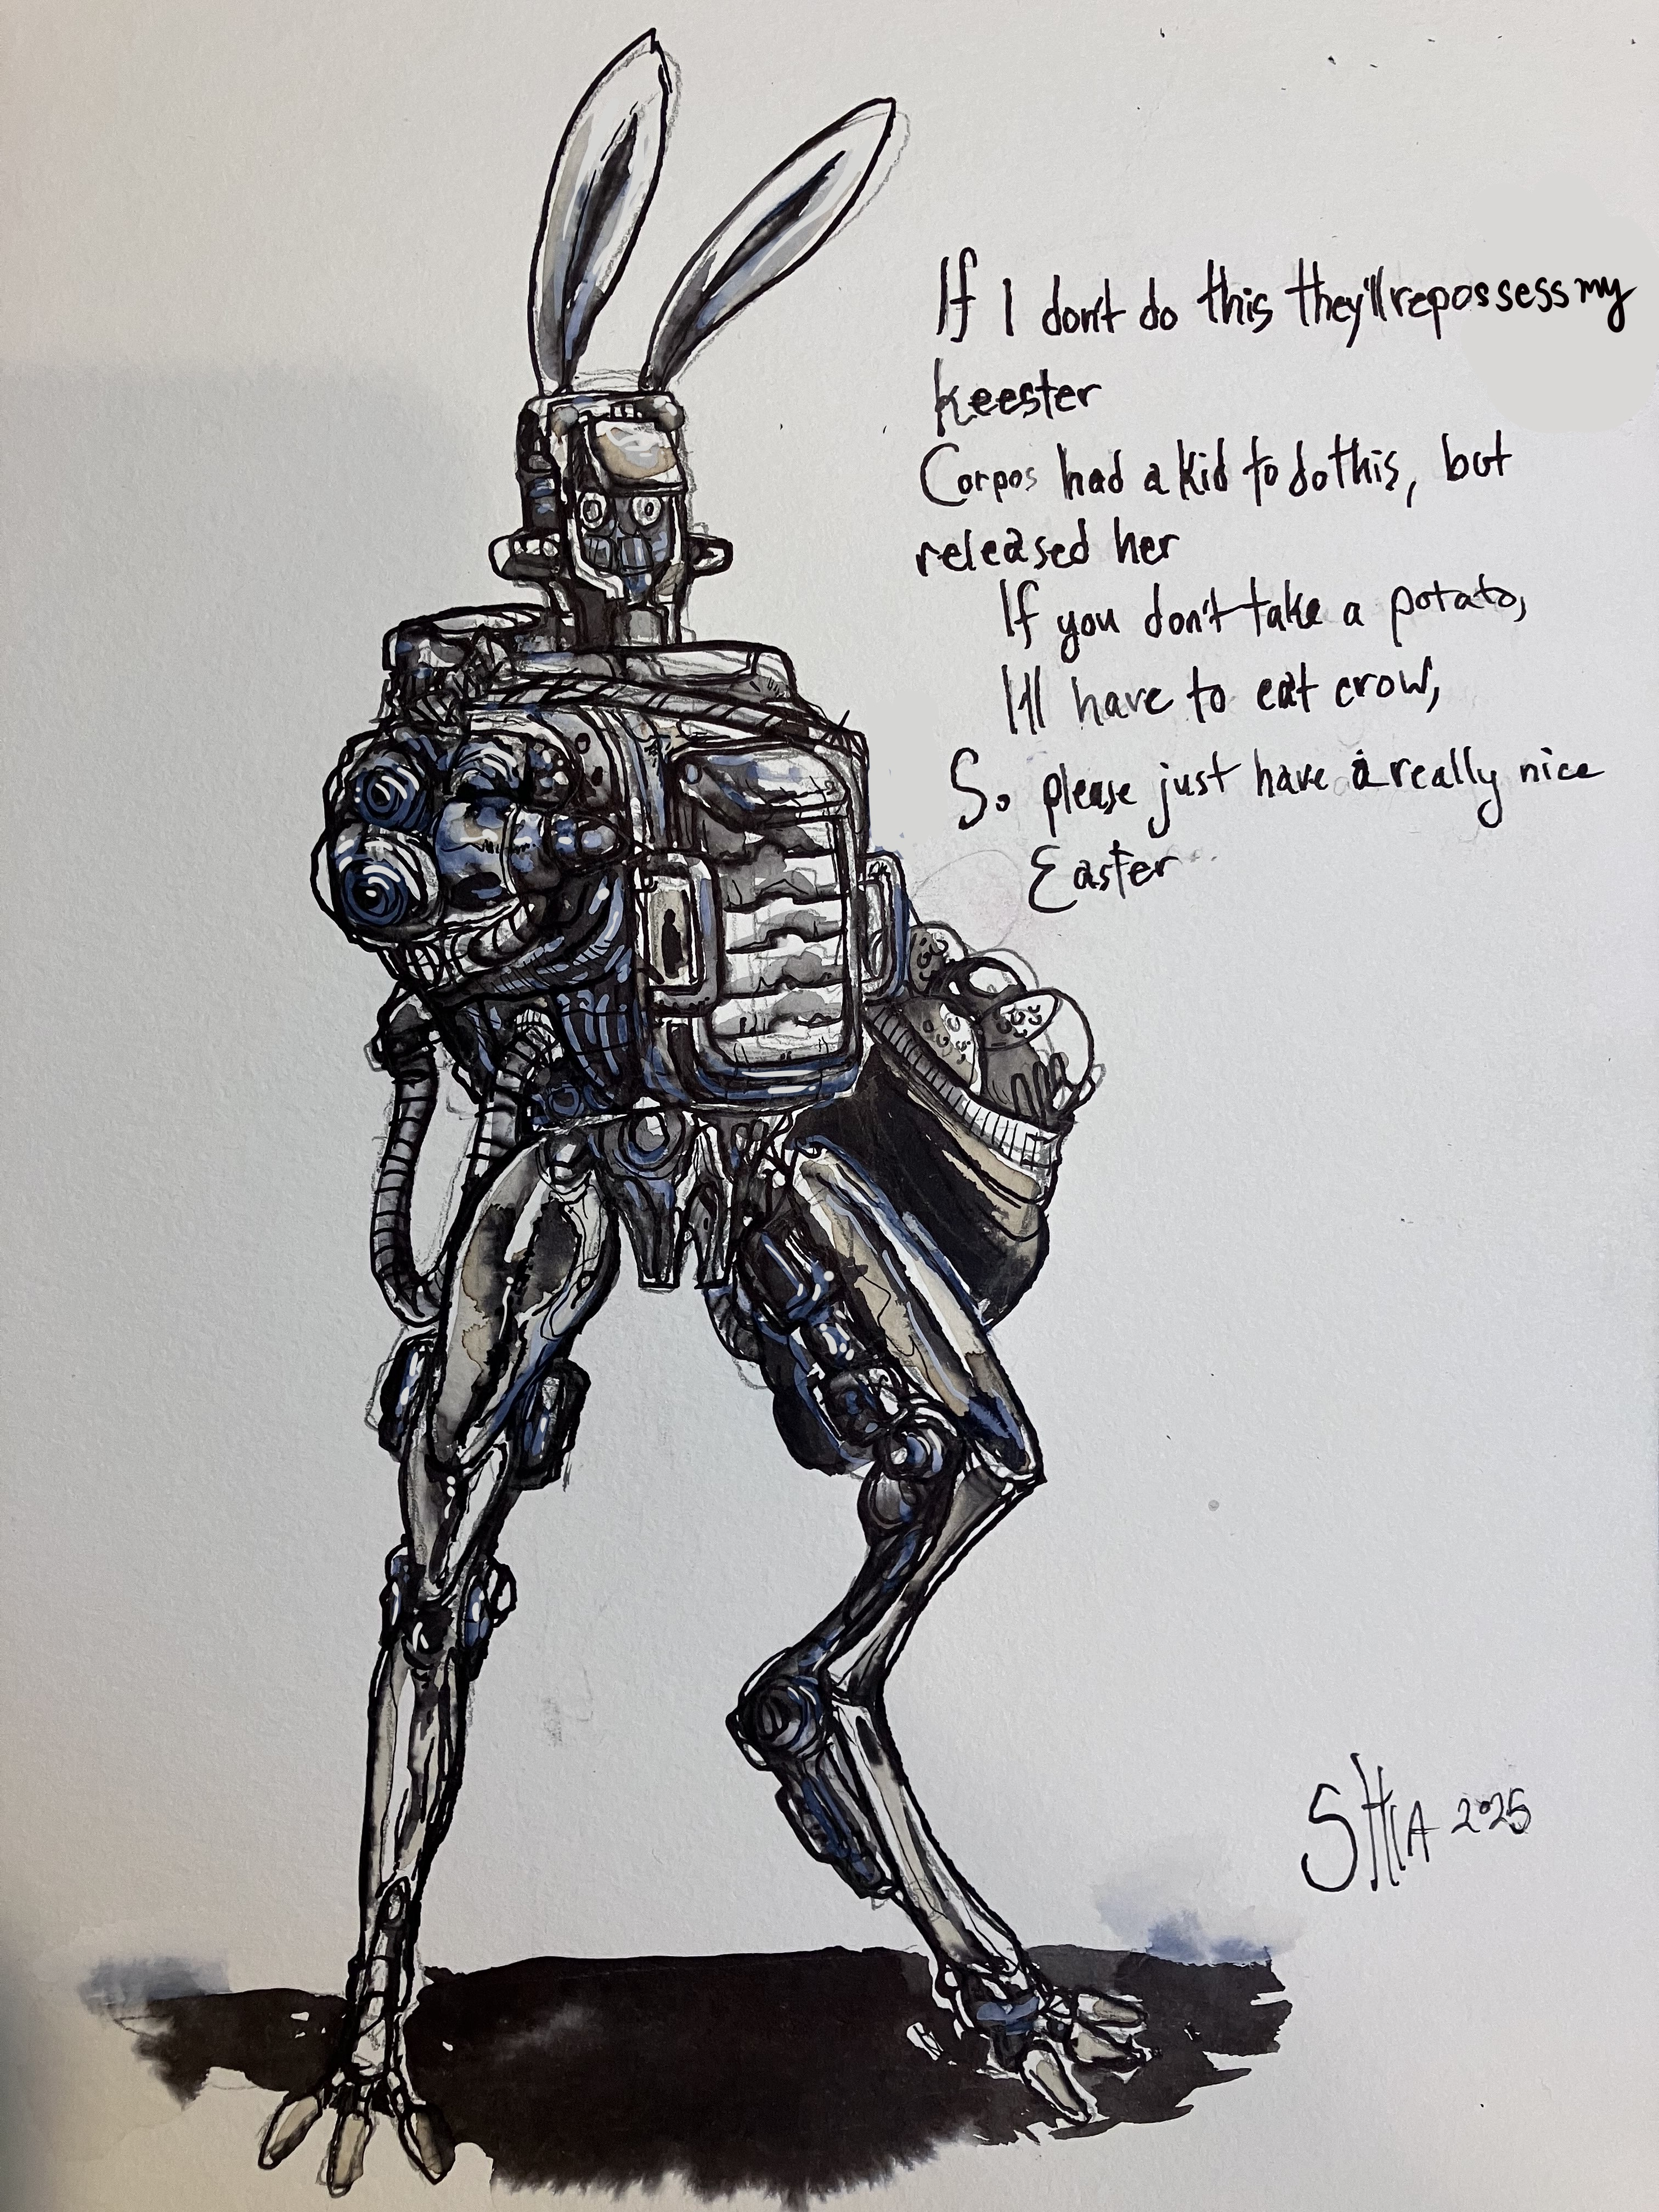 If I don't do this they'll repossess my
keester
Corpos had a kid to do this, but
released her
If you don't take a potato,
I'll have to eat crow,
So please just have a really nice
Easter
SHIA 2025